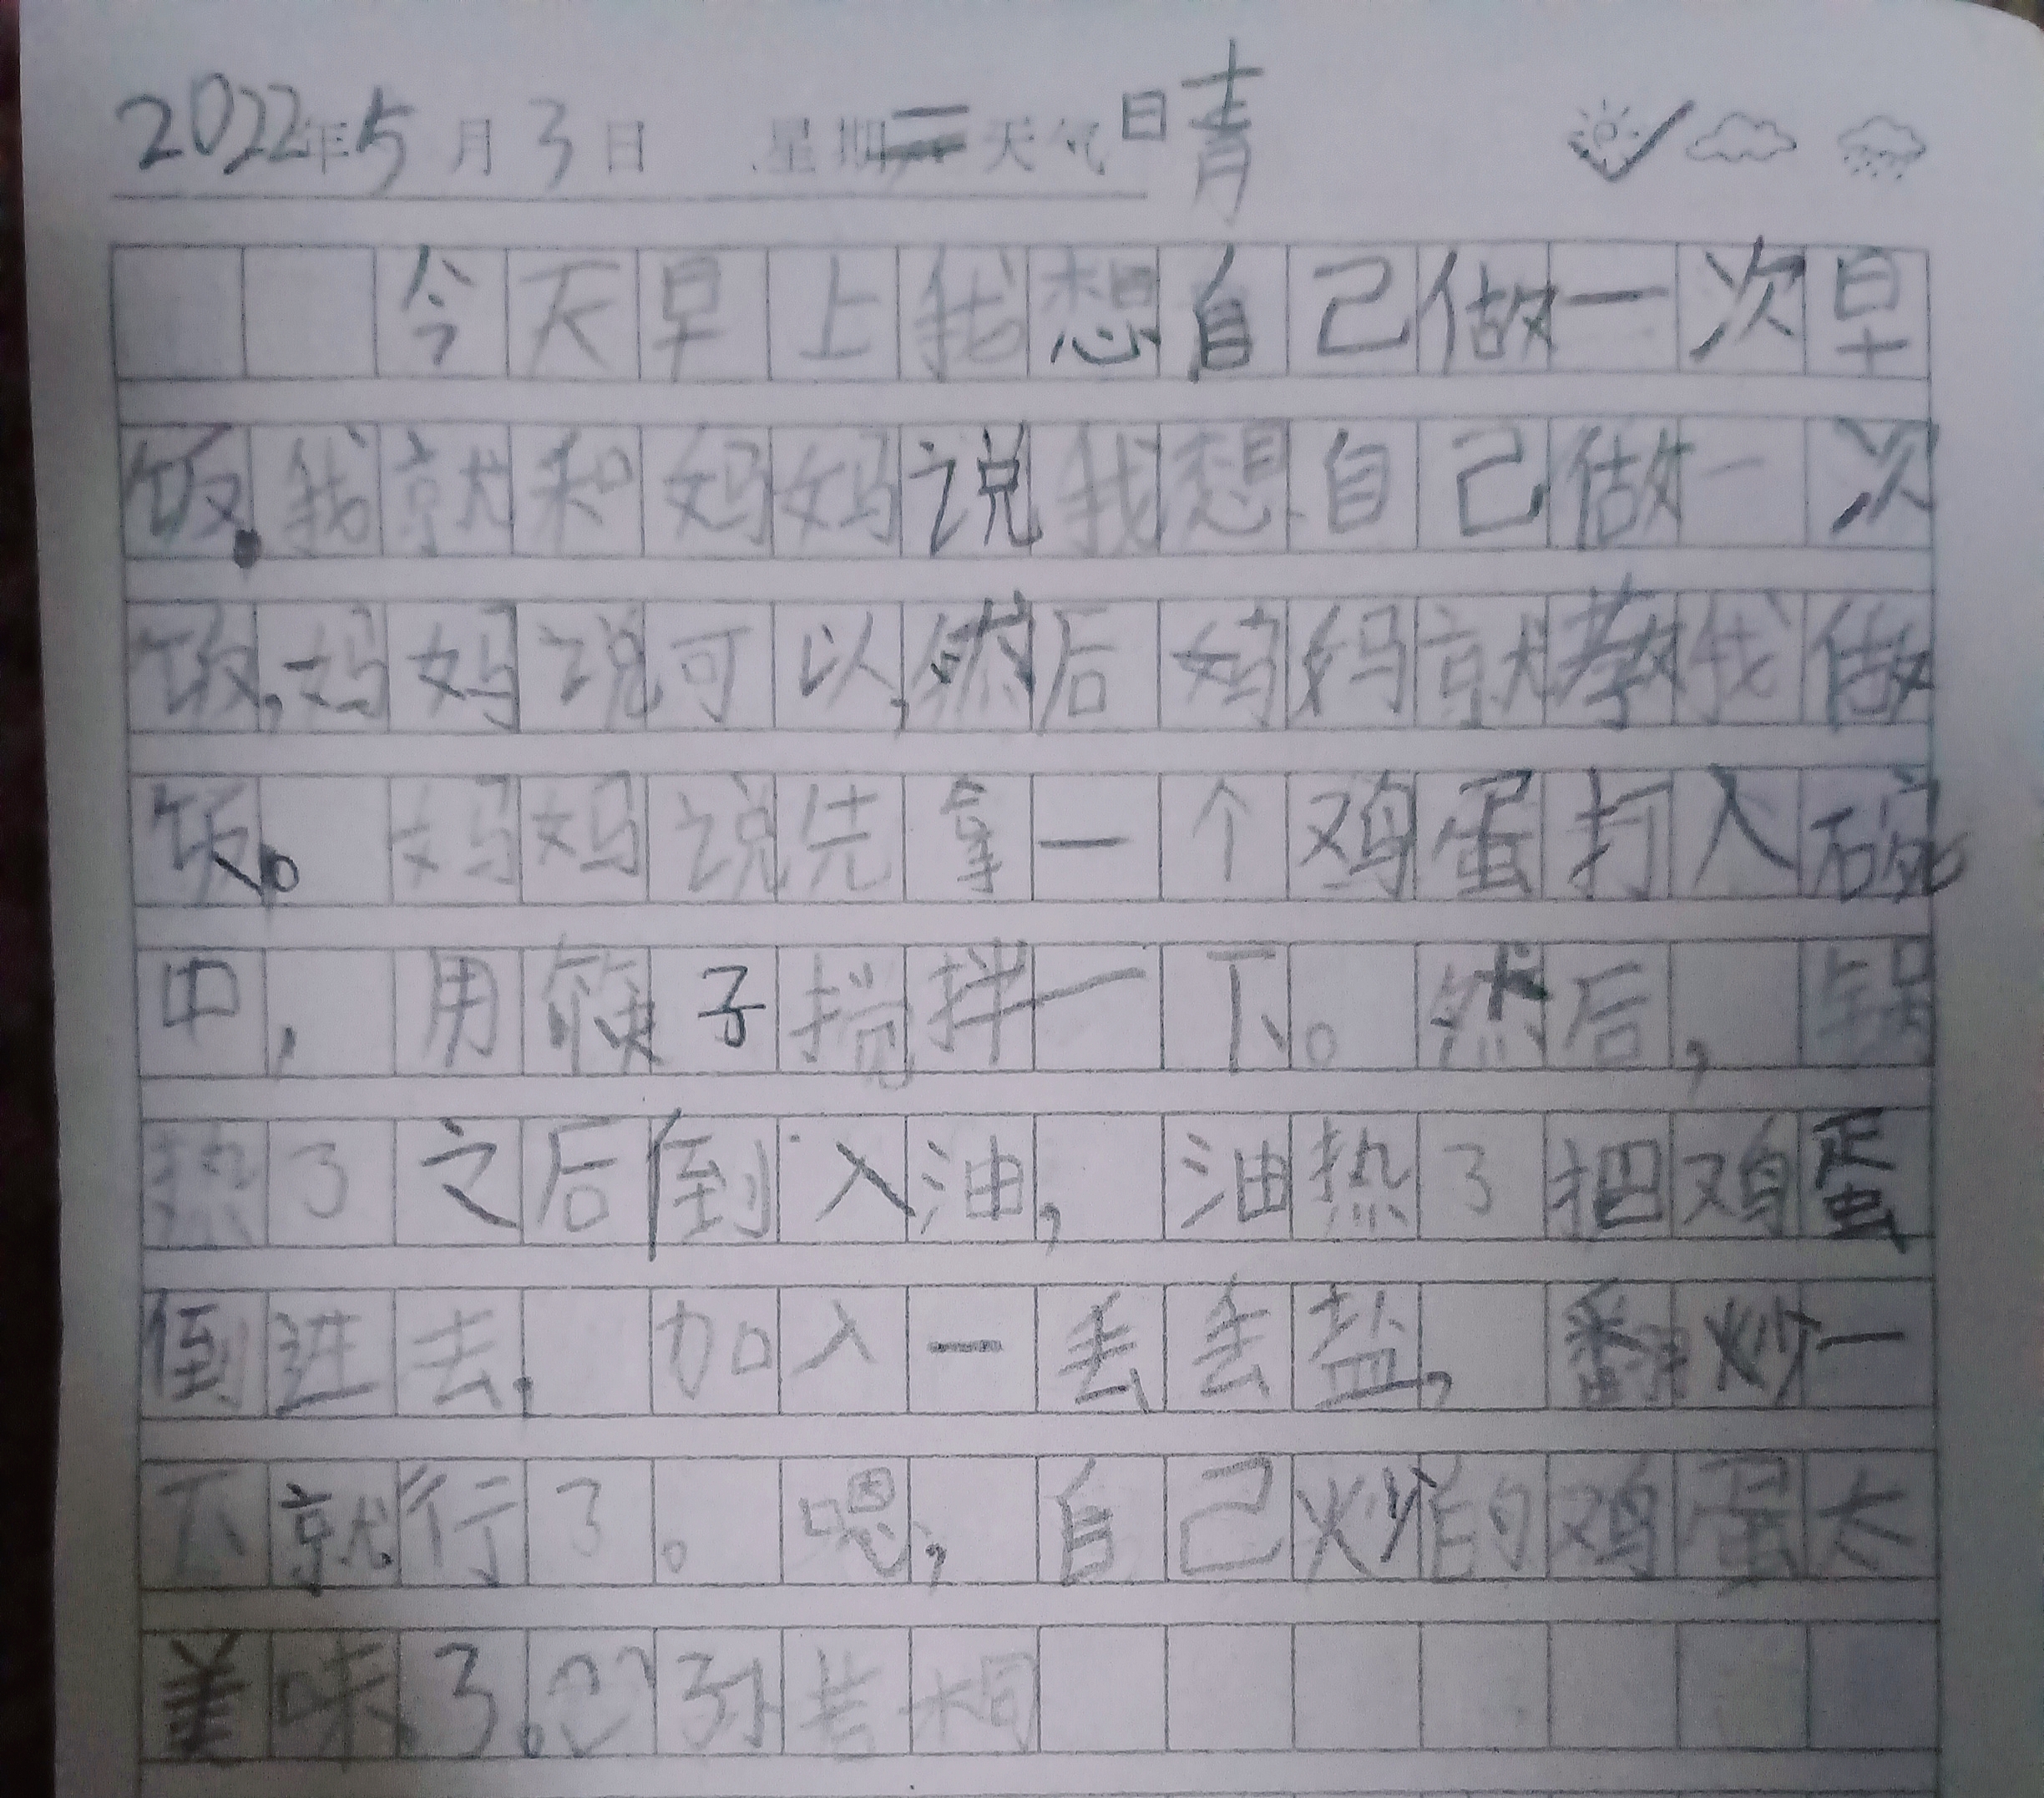 2022年5月3日 星期二天气晴
今天早上我想自己做一次早
饭。我就和妈妈说我想自己做一次
饭,妈妈说可以,然后妈妈就教我做
饭。妈妈说先拿一个鸡蛋打入碗
中,用筷子搅拌一下。然后,锅
热了之后倒入油,油热了把鸡蛋
倒进去,加入一丢丢盐,翻炒一
下就行了。嗯,自己炒的鸡蛋太
美味了。